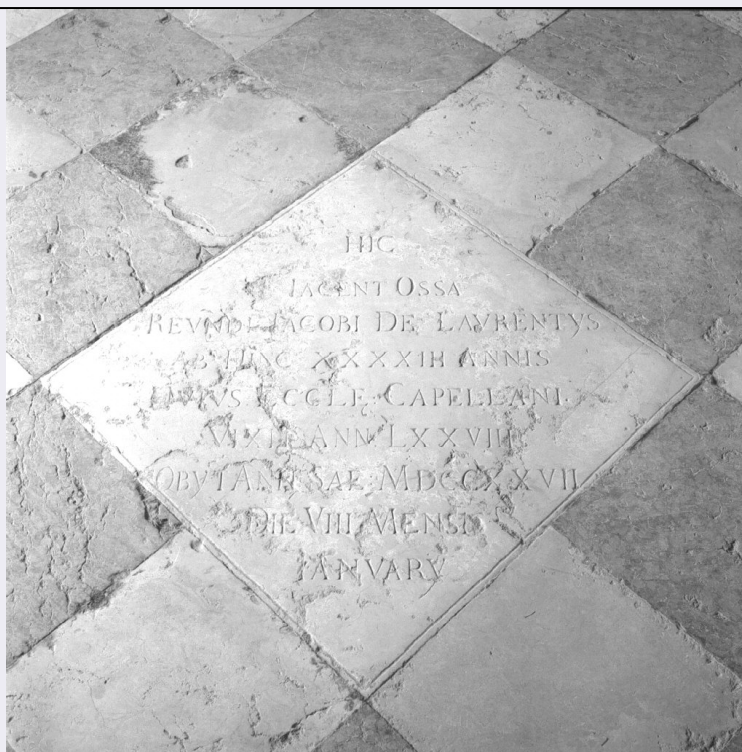 HIC
IACENT OSSA
REVNDI IACOBI DE LAVRENTYS
AB HINC XXXXIII ANNIS
HVIVS ECCLE CAPELLANI
VIXIT ANN LXXVIII
OBYT ANN SAL MDCCXXVII
DIE VIII MENSIS
IANVARY